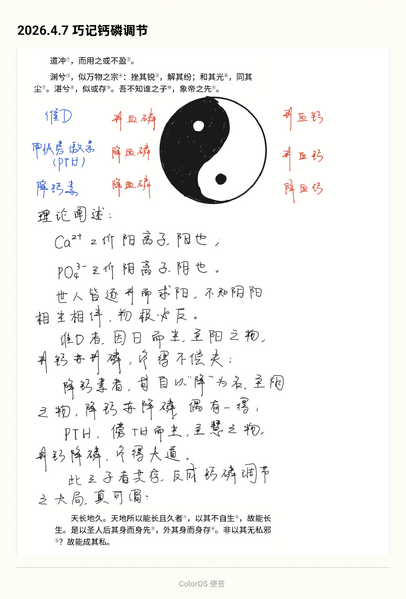 2026.4.7 巧记钙磷调节
道冲①，而用之或不盈②。
渊兮③，似万物之宗④：挫其锐⑤，解其纷；和其光⑥，同其
尘⑦。湛兮⑧，似或存⑨。吾不知谁之子⑩，象帝之先⑪。
维D 升血磷 升血钙
甲状旁腺素 降血磷 升血钙
(PTH)
降钙素 降血磷 降血钙
理论阐述：
Ca²⁺ 二价阳离子，阳也，
PO₄³⁻ 三价阴离子，阴也。
世人皆逐升而求阳，不知阴阳
相生相伴，物极必反。
维D者，因日而生，至阳之物，
升钙亦升磷，终得不偿失；
降钙素者，自以“降”为名，至阴
之物，降钙亦降磷，偶有一得；
PTH，傍TH而生，至慧之物，
升钙降磷，终得大道。
此三子者共存，反成钙磷调节
之大局，真可谓：
天长地久。天地所以能长且久者，以其不自生，故能长
生。是以圣人后其身而身先，外其身而身存。非以其无私邪
？故能成其私。
ColorOS 便签